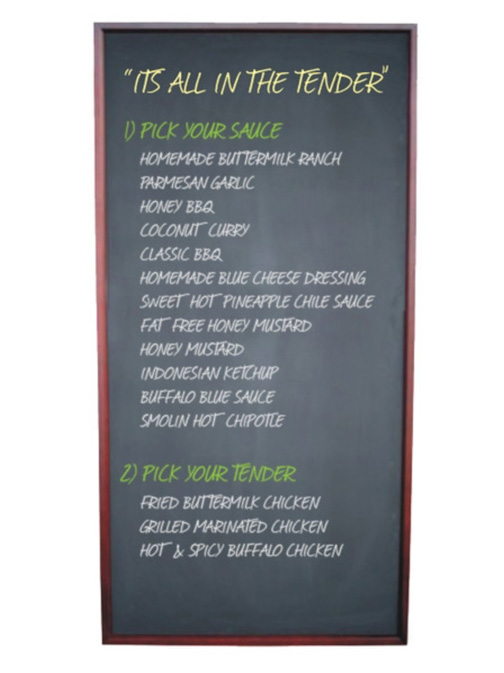 "ITS ALL IN THE TENDER"
1) PICK YOUR SAUCE
HOMEMADE BUTTERMILK RANCH
PARMESAN GARLIC
HONEY BBQ
COCONUT CURRY
CLASSIC BBQ
HOMEMADE BLUE CHEESE DRESSING
SWEET HOT PINEAPPLE CHILE SAUCE
FAT FREE HONEY MUSTARD
HONEY MUSTARD
INDONESIAN KETCHUP
BUFFALO BLUE SAUCE
SMOLIN HOT CHIPOTLE
2) PICK YOUR TENDER
FRIED BUTTERMILK CHICKEN
GRILLED MARINATED CHICKEN
HOT & SPICY BUFFALO CHICKEN